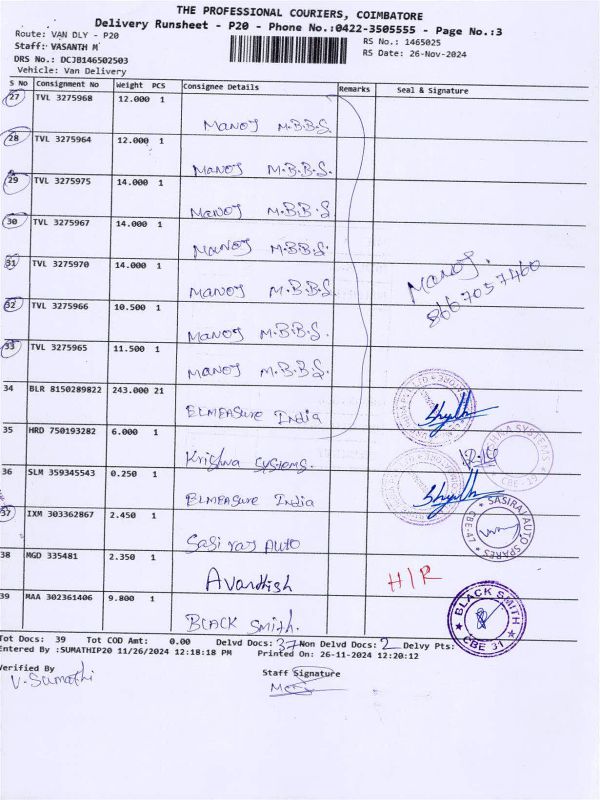 THE PROFESSIONAL COURIERS, COIMBATORE
Delivery Runsheet - P20 - Phone No.:0422-3505555 - Page No.:3
Route: VAN DLY - P20
RS No.: 1465025
Staff: VASANTH M
RS Date: 26-Nov-2024
DRS No.: DCJB146502503
Vehicle: Van Delivery
S No Consignment No Weight PCS Consignee Details Remarks Seal & Signature
27 TVL 3275968 12.000 1
MANOJ M.B.B.S.
28 TVL 3275964 12.000 1
MANOJ M.B.B.S.
29 TVL 3275975 14.000 1
MANOJ M.B.B.S
30 TVL 3275967 14.000 1
MANOJ M.B.B.S.
31 TVL 3275970 14.000 1
MANOJ M.B.B.S.
MANOJ.
8667057460
32 TVL 3275966 10.500 1
MANOJ M.B.B.S.
33 TVL 3275965 11.500 1
MANOJ M.B.B.S.
34 BLR 8150289822 243.000 21
ELMEASure India
35 HRD 750193282 6.000 1
Krishna Systems.
SYSTEMS
CBE-19
36 SLM 359345543 0.250 1
ELMEASure India
37 IXM 303362867 2.450 1
Sasi raj Auto
SASIRAJ AUTO SPARES
38 MGD 335481 2.350 1
Avardhish
H/R
39 MAA 302361406 9.800 1
BLACK Smith.
BLACK SMITH
CBE 31
Tot Docs: 39 Tot COD Amt: 0.00 Delvd Docs: 37 Non Delvd Docs: 2 Delvy Pts:
Entered By :SUMATHIP20 11/26/2024 12:18:18 PM Printed On: 26-11-2024 12:20:12
Verified By
Staff Signature
V. Sumathi